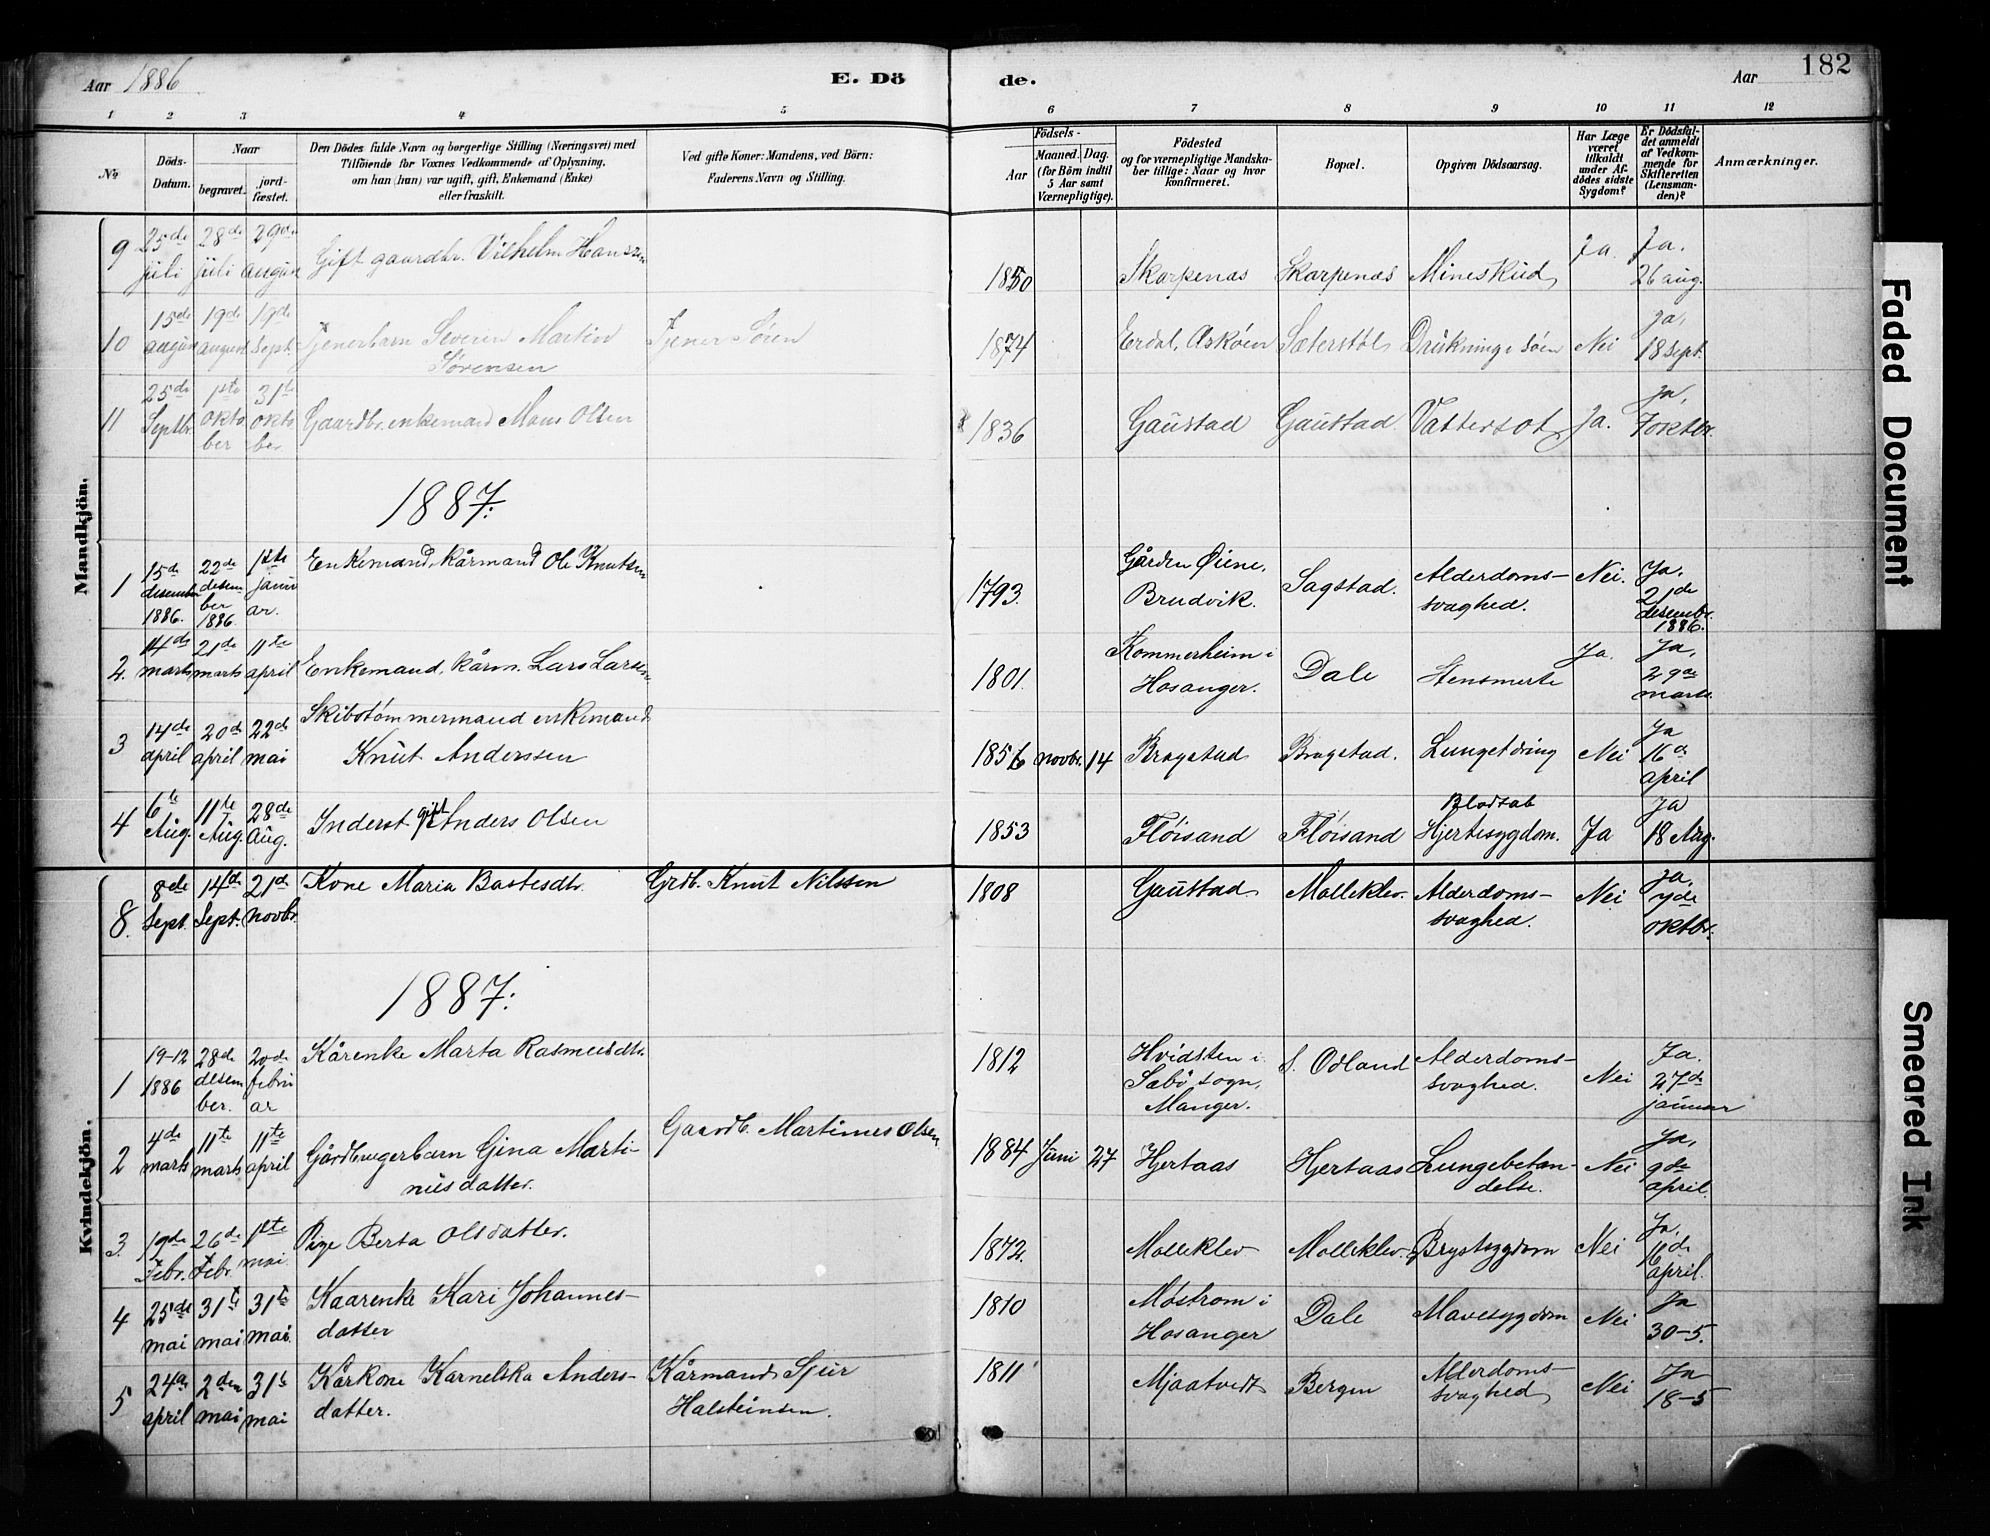 182
Aar 1886
E. Dö
de.
Aar
1 2 3 4 5 6 7 8 9 10 11 12
No
Döds-
Datum.
Naar
begravet.
jord-
fæstet.
Den Dödes fulde Navn og borgerlige Stilling (Næringsvei) med
Tilföiende for Voxnes Vedkommende af Oplysning,
om han (hun) var ugift, gift, Enkemand (Enke)
eller fraskilt.
Ved gifte Koner: Mandens, ved Börn:
Faderens Navn og Stilling.
Födsels-
Aar
Maaned. Dag.
(for Börn indtil
5 Aar samt
Værnepligtige).
Födested
og for værnepligtige Mandska-
ber tillige: Naar og hvor
konfirmeret.
Bopæl.
Opgiven Dödsaarsag.
Har Læge
været
tilkaldt
under Af-
dödes sidste
Sygdom?
Er Dödsfal-
det anmeldt
af Vedkom-
mende for
Skifteretten
(Lensman-
den)?
Anmærkninger.
Mandkjön.
9 25de juli 28de juli 29de august Gift gaardbr. Vilhelm Hanssen 1850 Skarpenæs Skarpenæs Mineskud Ja. Ja. 26 aug.
10 15de august 19de august 19de sept. Tjenerbarn Severin Martin
Sörensen Tjener Sören 1874 Erdal, Askøen Sæterstøl Drukning i søen Nei Ja, 18 sept.
11 25de Septbr. 1ste oktober 31te oktober Gaardbr. enkemand Mons Olsen 1836 Gaustad Gaustad Vattersot Ja. Ja, 7 oktbr.
1887:
1 15de desember 1886. 22de desember 1886 1ste januar. Enkemand, kårmand Ole Knutsen 1793. Gården Øiene, Brudvik. Sagstad. Alderdoms-
svaghed. Nei. Ja, 21de desembr. 1886.
2. 14de marts 21de marts 11te april Enkemand, kårm. Lars Larsen 1801. Kommerheim i Hosanger. Dale Stensmerte Ja. Ja, 29de marts.
3 14de april 20de april 22de mai Skibstømmermand enkemand
Knut Anderssen 1856 novbr. 14 Bragstad Bragstad. Lungetæring Nei Ja 16de april
4 6te Aug. 11te Aug. 28de Aug. Inderst gift Anders Olsen 1853 Fløisand Fløisand Blodtab
Hjertesygdom. Ja Ja 18 Aug.
Kvindekjön.
8. 8de Sept. 14de Sept. 21de novbr. Kone Maria Bastesdtr. Grdb. Knut Nilssen 1808 Gaustad Molleklev. Alderdoms-
svaghed. Nei Ja, 7de oktbr.
1887:
1 19-12 1886 28de desember. 20de februar Kårenke Marta Rasmusdtr. 1812 Hvidsten i Sæbø sogn, Manger. S. Odland Alderdoms-
svaghed. Nei Ja. 27de januar
2 4de marts 11te marts 11te april Gårdbrugerbarn Gina Marti-
nusdatter. Gaardb. Martinus Olsen 1884 Juni 27 Hjertaas Hjertaas Lungebetæn-
delse. Nei Ja, 9de april.
3. 19de Febr. 26de Febr. 1ste mai Pige Berta Olsdatter. 1872. Molleklev Molleklev. Brystsygdom Nei Ja, april.
4 25de mai 31te mai 31te mai. Kaarenke Kari Johannes-
datter 1810 Møstrom i Hosanger Dale Mavesygdom Nei Ja 30-5.
5 24de april 2den mai 31te mai Kårkone Karnelska Anders-
datter. Kårmand Sjur
Halsteinsen. 1811 Mjaatvedt Bergen Alderdoms-
svaghed Nei Ja 18-5
Faded Document
Smeared Ink